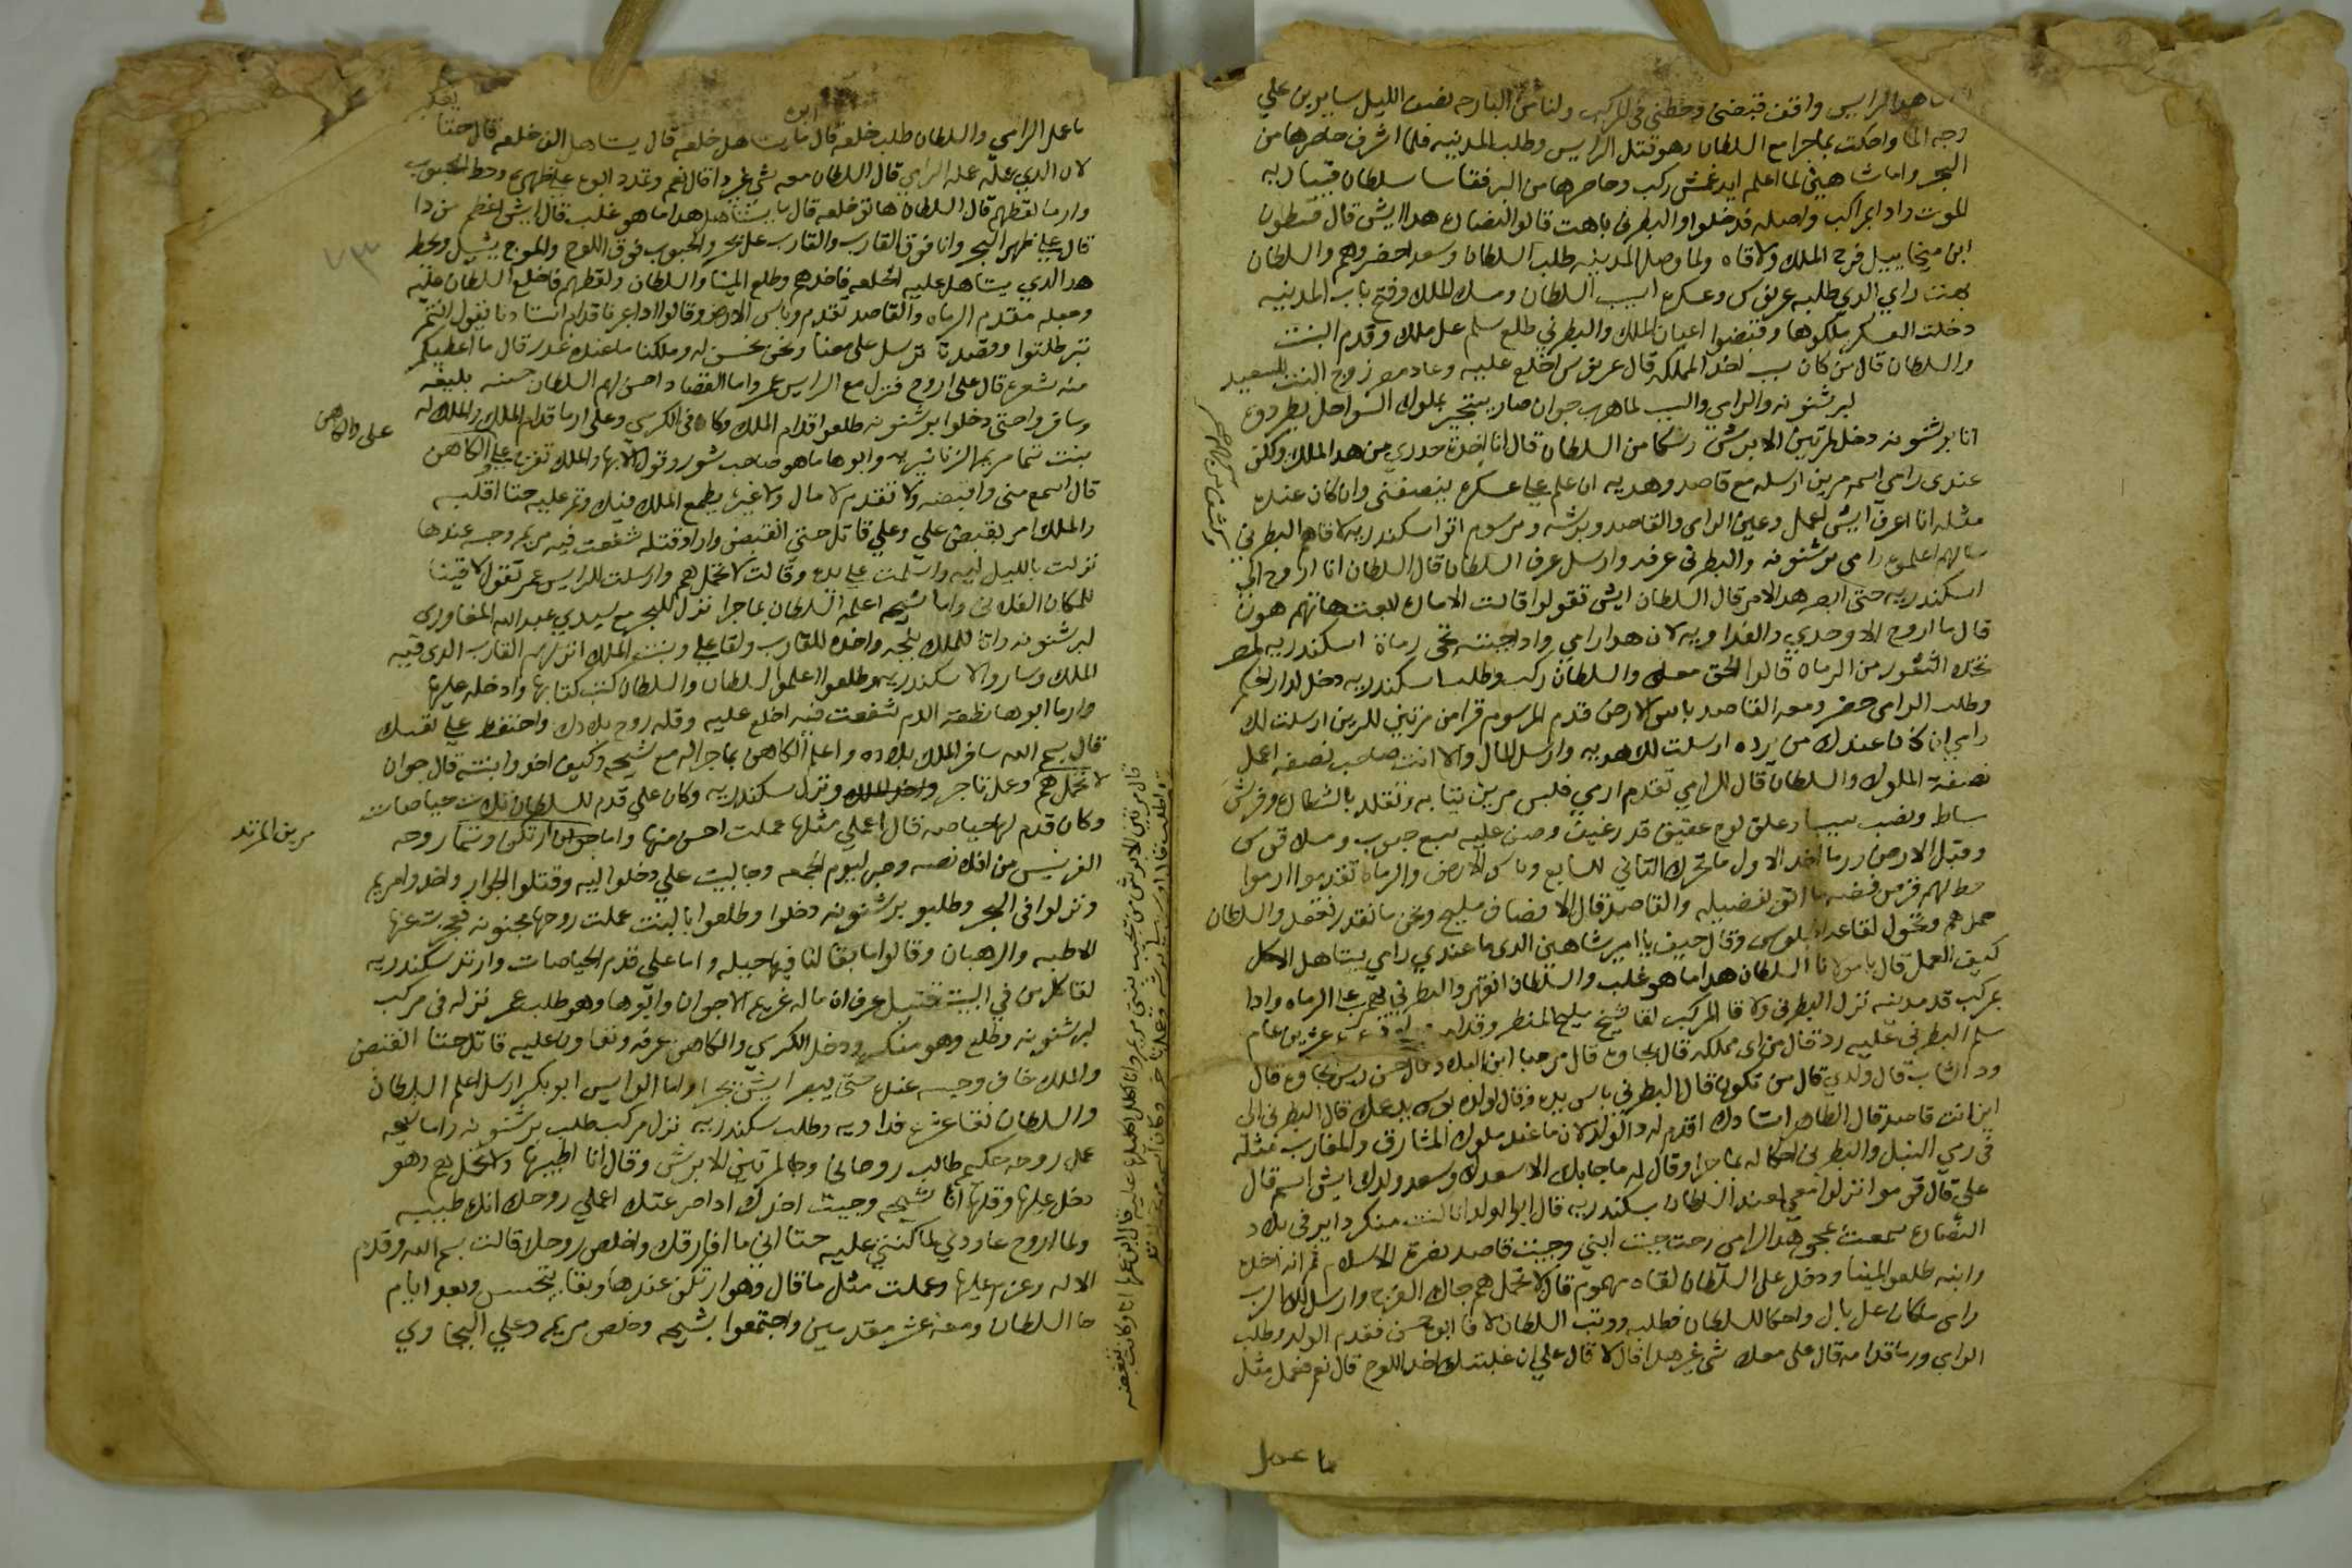 هدا الرايس واقف قبضني وحطني في المركب ولنا من البارحه نصف الليل سايرين علي
وجه الما واحكت بما جرا مع السلطان وهو قتل الرايس وطلب المدينه فلما اشرف حاصرها من
البحر واما شاهين لما اعلم ايدغمش ركب وحاصرها من البر
الموت وادا بمراكب واصله قد دخلوا والبطرني باهت قالوا النصاره هدا ايش قال قسطون
ابن ميخاييل فرح الملك ولاقاه ولما وصل المدينه طلب السلطان وسعد احضروهم والسلطان
بهت راي الدي طلبه عرنوس وعسكره اسيب السلطان ومسك الملك وفتح باب المدينه
دخلت العسكر ملكوها وقبضوا اعيان الملك والبطرني طلع سلم على ملك وقدم البنت
والسلطان قال من كان سبب لاخد المملكه قال عرنوس اخلع عليه وعاد مصر زوج البنت للسعيد
لبرشنونه والرامي والسبب لما هرب جوان صار يستجير بملوك السواحل يطردوه
اتا برشنونه دخل لمرتين الابرش وشكا من السلطان قال انا اخدت حدري من هدا الملك ولكن
عندي رامي اسمه مرين ارسله مع قاصد وهديه ان علم علي عسكره ينصفني وان كان عنده
مثله انا اعرف ايش اعمل وعين الرامي والقاصد وبرشه ومرسوم اتوا اسكندريه لاقاهم البطرني
سالهم اعلموه رامي برشنونه والبطرني عرفه وارسل عرف السلطان قال السلطان انا اروح الي
اسكندريه حتي ابصر هدا الامر قال السلطان ايش تقولوا قالت الاماره ابعت هاتهم هون
قال ما اروح الا وحدي والفداويه لان هدا رامي وادا جبته تجي رماة اسكندريه لمصر
تخلا الثغور من الرماه قالوا الحق معك والسلطان ركب وطلب اسكندريه دخل لدار الحكم
وطلب الرامي حضر ومعه القاصد باس الارض قدم المرسوم قرا من مرتين للرين ارسلت لك
رامي ان كان عندك من يرده ارسلت لك هديه وارسل المال والا انت صاحب نصفه اعمل
نصفة الملوك والسلطان قال للرامي تقدم ارمي فلبس مرين تيابه وتقلد بالنشاب وفرش
بساط ونصب سيبا وعلق لوح عقيق قد رغيف وصف عليه سبع حبوب ومسك قوس
وقبل الارض ورما اخد الاول ما تحرك التاني للسابع وباس الارض والرماه تقدموا ارموا
حط لهم قرص فضه والقاصد قال الانصاف مليح ونحن ما نقدر نقعد والسلطان
حمل هم وتحول لقاعد الجلوس وقال حيف يا امير شاهين الدي ما عندي رامي يستاهل الاكل
كيف العمل قال يا مولانا السلطان هدا ما هو غلب والسلطان انقهر والبطرني علي الرماه وادا
بمركب قد مدينه نزل البطرني ولاقا المركب لقا شيخ مليح المنظر وقدامه عشرين عام
سلم البطرني عليه رد قال من اي مملكه قال بجاوه قال مرحبا ابن البلد وقال حسن ريس بجاوه قال
ودا الشاب قال ولدي قال من تكون قال البطرني باس يده وقال لولده بوس يد عمك قال البطرني الي
اين انت قاصد قال الطاهر استادك اقدم له دا الولد لان ما عند ملوك المشارق والمغارب مثله
في رمي النبل والبطرني احكا له بما جرا وقال له ما جابك الا سعدك وسعد ولدك ايش اسمه قال
علي قال قوموا انزلوا معي لعند السلطان بسكندريه قال ابو الولد انا كنت منكر داير في بلاد
النصاره سمعت بمجي هدا الرامي رحت جبت ابني وجيت قاصد نصرة الاسلام ثم انه اخده
وابنه طلعوا المينا ودخل علي السلطان لقاه مهموم قال لا تحمل هم جاك الفرج
رامي ما كان علي بال واحكا للسلطان فطلبه ووتب السلطان لاقا ابوه حسن فقدم الولد وطلب
الرامي ورما قدامه قال علي معك شي غير هدا قال لا قال علي ان غلبتك اخد اللوح قال نعم فعمل مثل
ما عمل
ما عمل الرامي والسلطان طلب خلعه قال ابوه ما يستاهل خلعه قال يستاهل الف خلعه قال حتا
لان الدي عمله عمله الرامي قال السلطان معه شي غير دا قال نعم وتمدد ابوه علي ظهره وحط الحبوب
وارما لقطهم قال السلطان هاتو خلعه قال ما يستاهل هدا ما هو غلب قال ايش اعظم من دا
قال علي ظهر البحر وانا فوق القارب والقارب علي بحر والحبوب فوق اللوح والموج يشيل ويحط
هدا الدي يستاهل عليه الخلعه فاخدهم وطلع المينا والسلطان ولقطهم فاخلع السلطان عليه
وجعله مقدم الرماه والقاصد تقدم وباس الارض وقالوا ادا عرفنا قدام استادنا يقول انتم
تبرطلتوا وقصدنا ترسل علي معنا ونحن نحسن له وملكنا ما عنده غدر قال ما اعطيكم
منه شعره قال علي اروح فنزل مع الرايس عمر واما القصاد احسن لهم السلطان حسنه بليغه
وسافروا حتي دخلوا برشنونه طلعوا قدام الملك وكان في الكرسي وعلي ارما قدام الملك والملك له
بنت اسمها مريم الزناريه وابوها ما هو صاحب شور وتولا بها والملك تفرج علي الكاهن
علي والكاهن
قال اسمع مني واقبضه ولا تقدم لا مال ولا غيره يطمع الملك فيك وتم عليه حتا اقلبه
والملك امر بقبض علي وعلي قاتل حتي انقبض واراد قتله شفعت فيه مريم وحبسه عندها
نزلت بالليل ليه واسلمت علي يده وقالت لا تحمل هم وارسلت للرايس عمر تقول لاقينا
للمكان الفلاني واما شيحه اعلم السلطان بما جرا نزل للبحر مع سيدي عبد الله المغاوري
لبرشنونه واتا للملك بنجه واخده للقارب ولقا علي وبنت الملك انزلهم القارب الدي فيه
الملك وساروا لاسكندريه وطلعوا اعلموا السلطان والسلطان كتب كتابها وادخله عليها
واما ابوها نطفة الدم شفعت فيه اخلع عليه وقله روح بلادك واحتفظ علي نفسك
قال بسم الله سافر الملك بلاده واعلم الكاهن بما جرا له مع شيحه وكيف اخدوا بنته قال جوان
لا تحمل هم وعمل تاجر ونزل سكندريه وكان علي قدم للسلطان تلات حياصات
وكان قدم لها حياصه قال اعملي مثلها عملت احسن منها واما جوان ارتكن وسما روحه
مرين المرتد
وحبر ليوم الجمعه وجا لبيت علي دخلوا ليه وقتلوا الجوار واخدوا مريم
ونزلوا في البحر وطلبو برشنونه دخلوا وطلعوا بالبنت عملت روحها مجنونه عجزت عنها
الاطبه والرهبان وقالوا ما بقا لنا فيها حيله واما علي قدم الحياصات وارتد سكندريه
لقا كل من في البيت قتيل عرف ان ما له غريم الا جوان وابوها وهو طلب عمر نزله في مركب
لبرشنونه وطلع وهو منكر ودخل الكرسي والكاهن عرفه وتعاونوا عليه قاتل حتا انقبض
والملك خاف وحبسه عنده حتي يبصر ايش يجرا واما الرايس ابو بكر ارسل اعلم السلطان
والسلطان نقا عشره فداويه وطلب سكندريه نزل مركب طلب برشنونه واما شيحه
عمل روحه حكيم طالب روحاني وجا لمرتين الابرش وقال انا اطيبها ولا تحمل هم وهو
دخل عليها وقلها انا شيحه وجيت اخدك ادا صرعتك اعملي روحك انك طيبيه
ولما اروح عاودي لما كنتي عليه حتا اني ما افارقك واخلص روحك قالت بسم الله وقدم
الاله وعزم عليها وعملت مثل ما قال وهو ارتكن عندها وبقا يتجسس وبعد ايام
جا السلطان ومعه عشر مقدمين واجتمعوا بشيحه وخلص مريم وعلي البجاوي